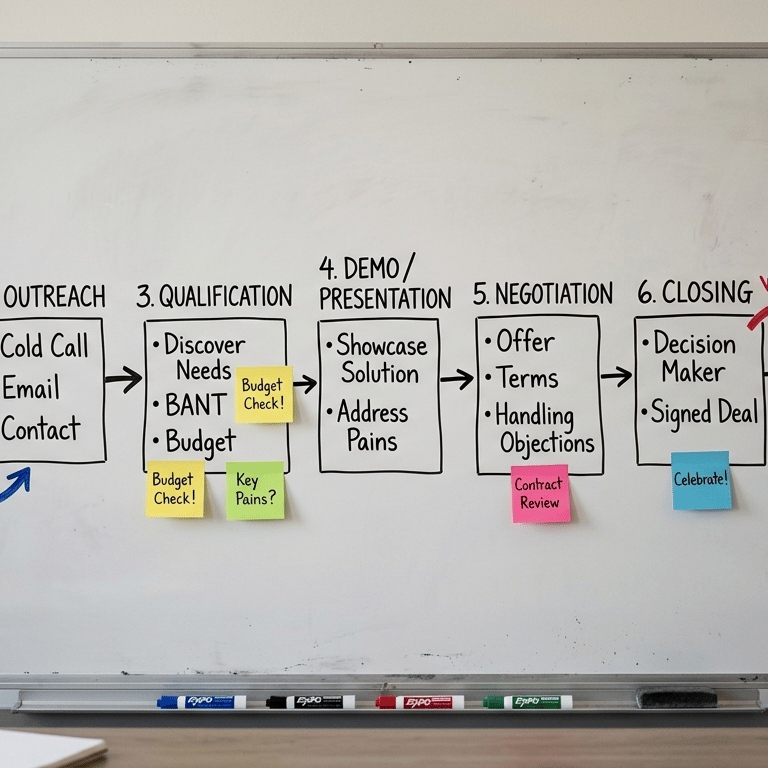 OUTREACH
Cold Call
Email
Contact
3. QUALIFICATION
• Discover
Needs
• BANT
• Budget
Budget
Check!
Budget
Check!
Key
Pains?
4. DEMO /
PRESENTATION
• Showcase
Solution
• Address
Pains
5. NEGOTIATION
• Offer
• Terms
• Handling
Objections
Contract
Review
6. CLOSING
• Decision
Maker
• Signed Deal
Celebrate!
EXPO
EXPO
EXPO
EXPO